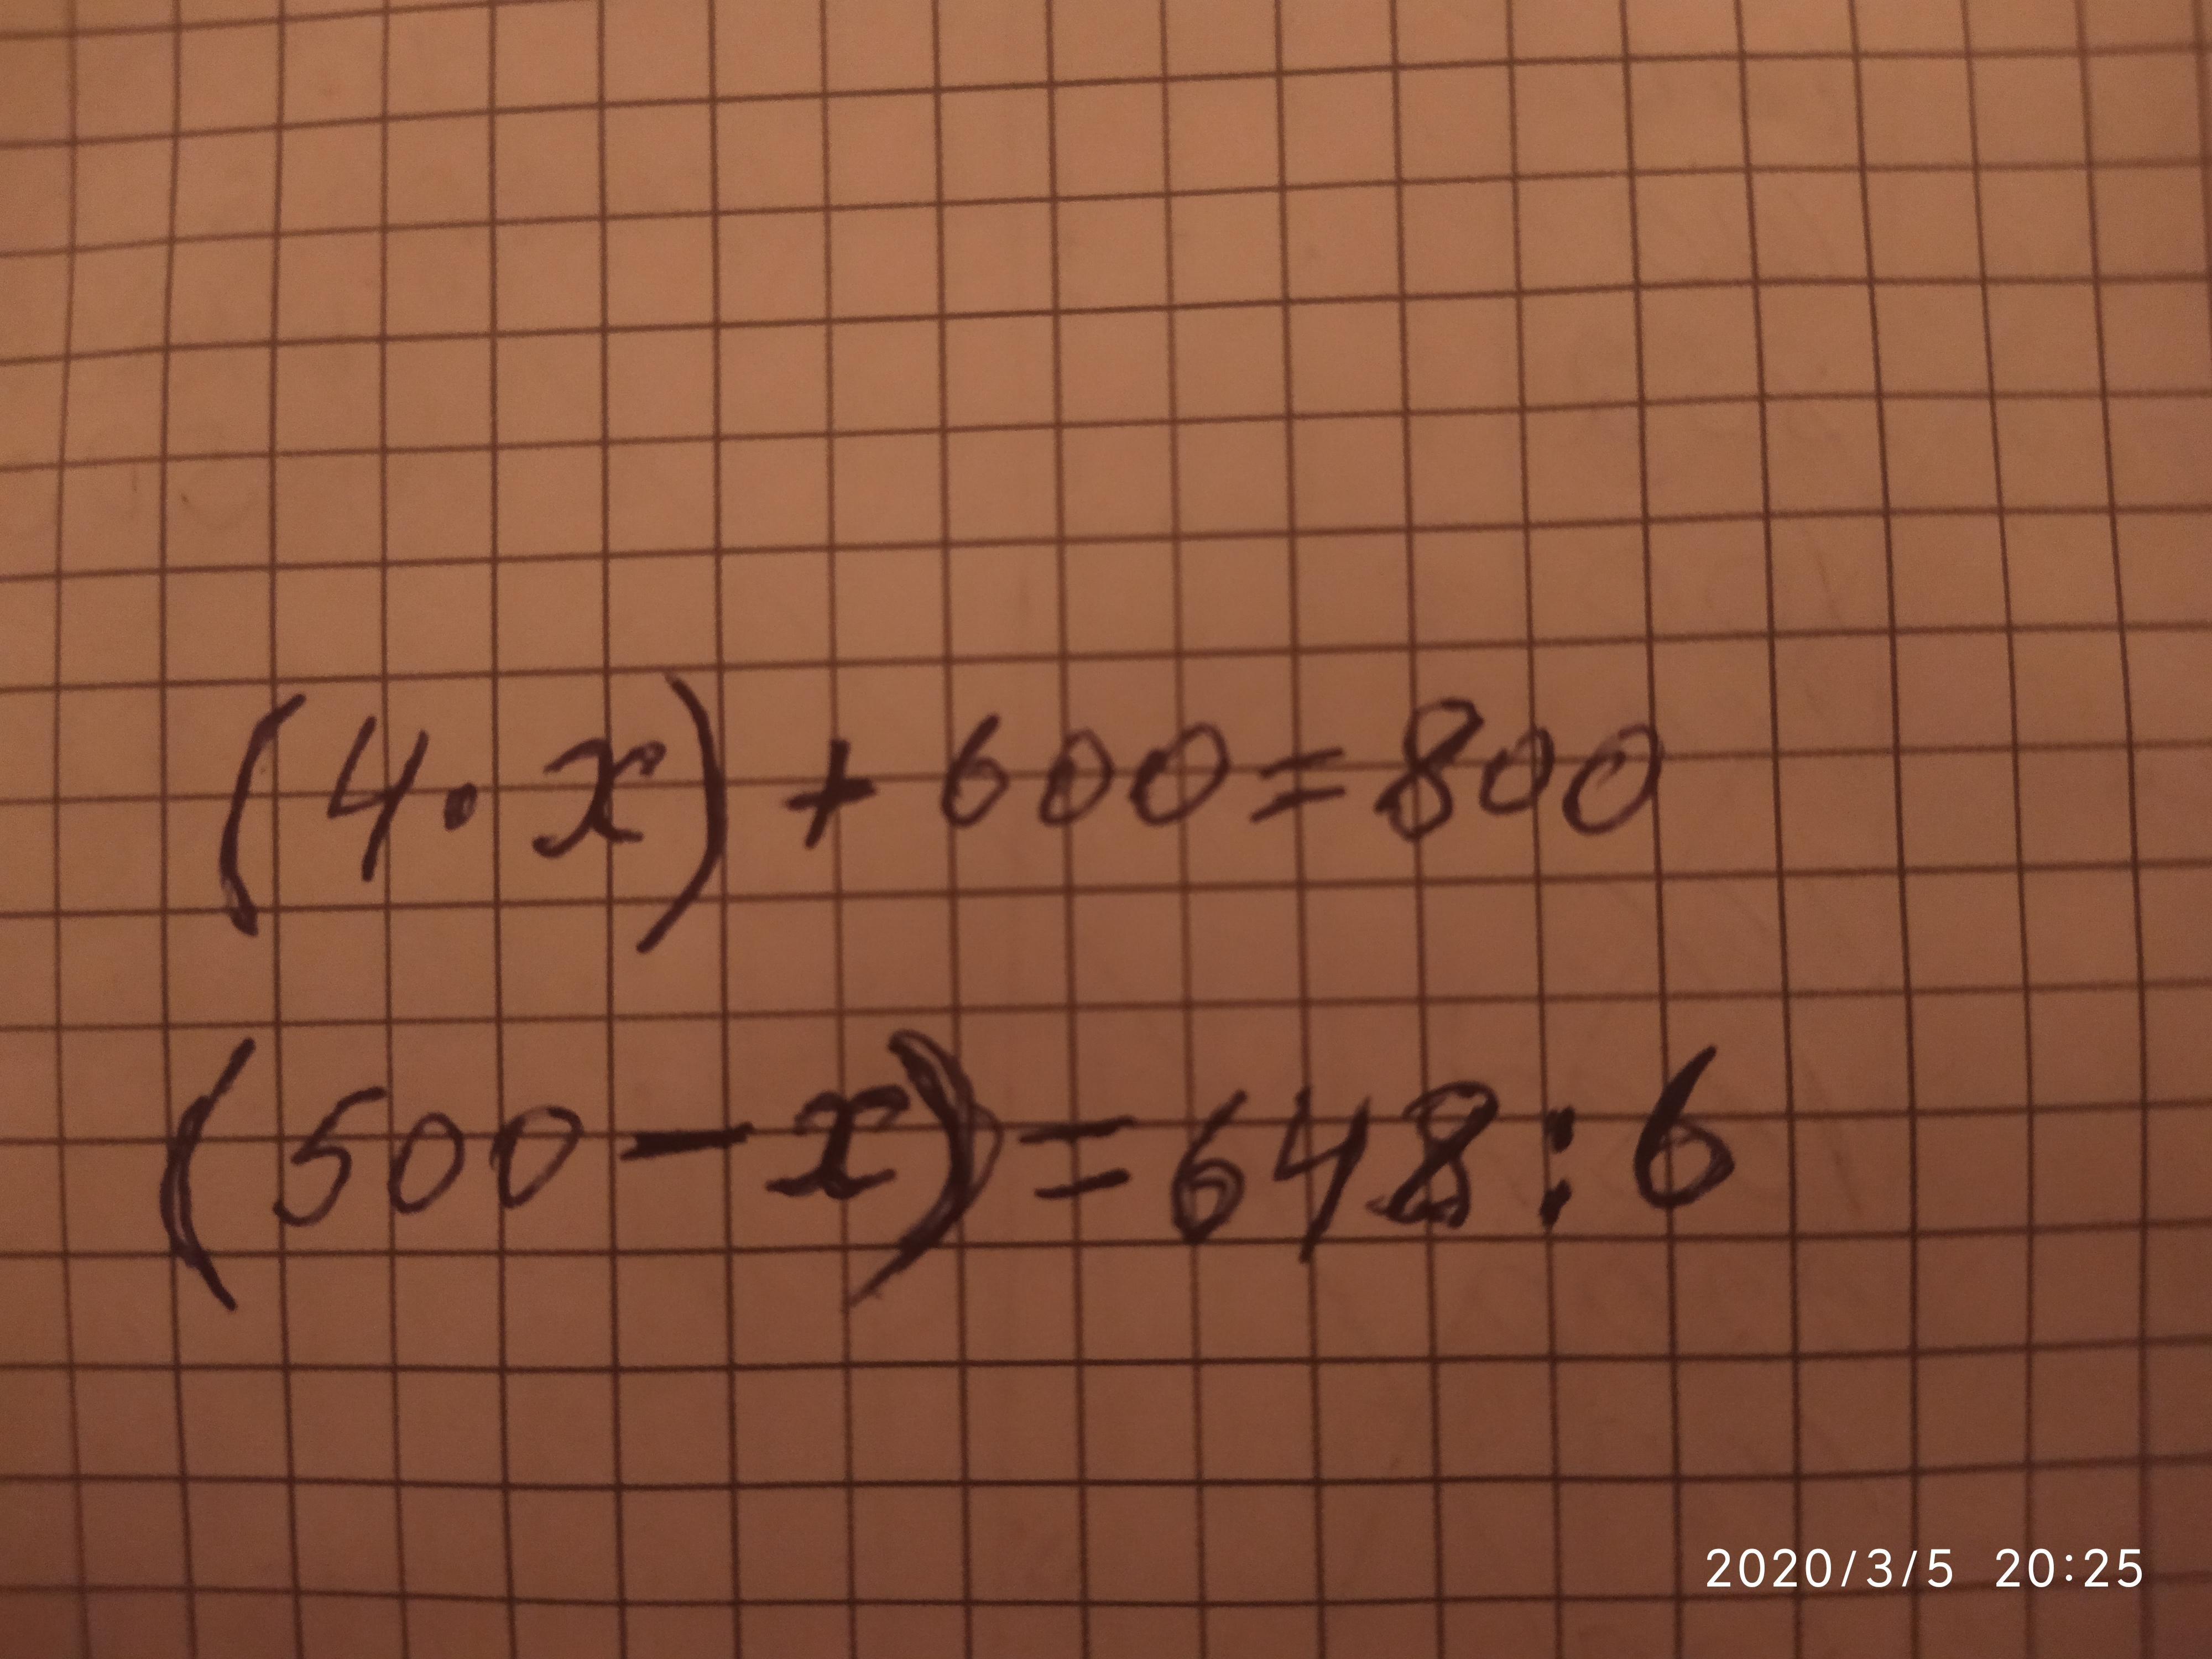 (4·x)+600=800
(500-x)=648:6
2020/3/5 20:25